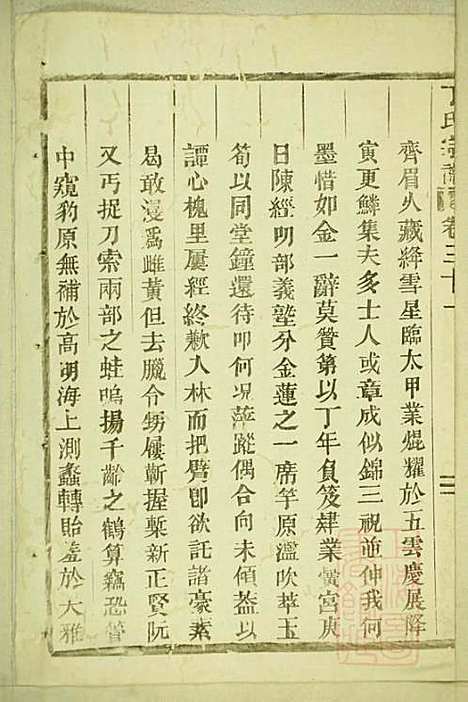 丁氏宗譜 卷三十一
齊眉人藏絳雪星臨太甲業焜耀於五雲慶展降
寅更鱗集夫多士人或章成似錦三祝並伸我何
墨惜如金一辭莫贊第以丁年負笈肄業黌宮庚
日陳經明部義塾分金蓮之一席竽原濫吹萃玉
筍以同堂鐘還待叩何况萍蹤偶合向未傾葢以
譚心槐里屢經終歉入林而把臂卽欲託諸豪素
曷敢漫爲雌黃但去臘令甥屨蘄握槧新正賢阮
又丐捉刀索兩部之蛙鳴揚千齡之鶴算竊恐管
中窺豹原無補於高明海上測蠡轉貽羞於大雅